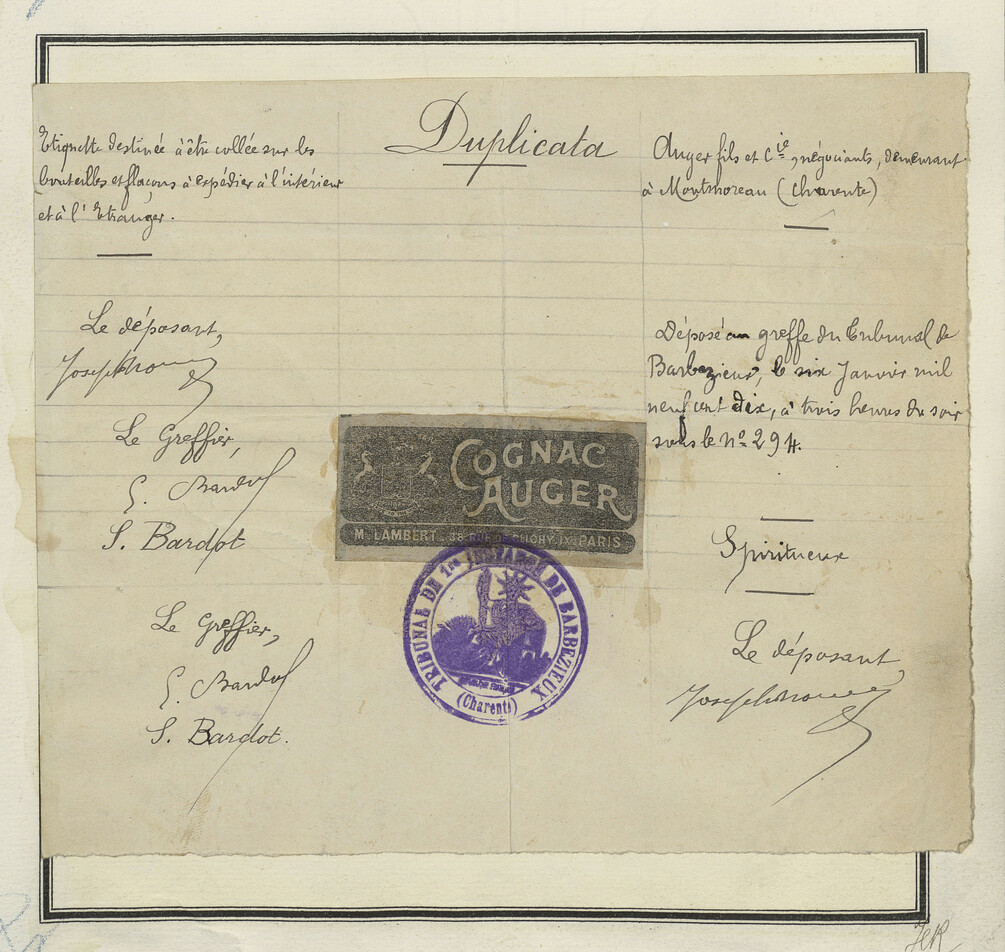 Duplicata
Etiquette destinée à être collée sur les
bouteilles et flaçons à expédier à l'intérieur
et à l'Etranger.
Auger fils et Cie, négociants, demeurant
à Montmoreau (Charente)
Le déposant,
Le Greffier,
S. Bardot
Le Greffier,
S. Bardot.
COGNAC
AUGER
M. LAMBERT _ 38 RUE DE CLICHY. IXe PARIS
TRIBUNAL DE 1re INSTANCE DE BARBEZIEUX
(Charente)
Déposé au greffe du Tribunal de
Barbezieux, le six Janvier mil
neuf cent dix, à trois heures du soir
sous le No 294.
Spiritueux
Le déposant,